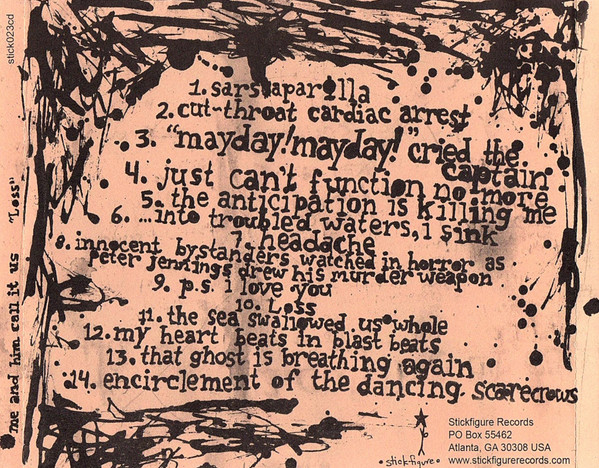 stick023cd
me and him call it us "Loss"
1. sarsaparilla
2. cut-throat cardiac arrest
3. "mayday! mayday!" cried the
captain
4. just can't function no more
5. the anticipation is killing me
6. ...into troubled waters, i sink
7. headache
8. innocent bystanders watched in horror as
peter jennings drew his murder weapon
9. p.s. i love you
10. Loss
11. the sea swallowed us whole
12. my heart beats in blast beats
13. that ghost is breathing again
14. encirclement of the dancing scarecrows
• stickfigure •
Stickfigure Records
PO Box 55462
Atlanta, GA 30308 USA
www.stickfigurerecords.com